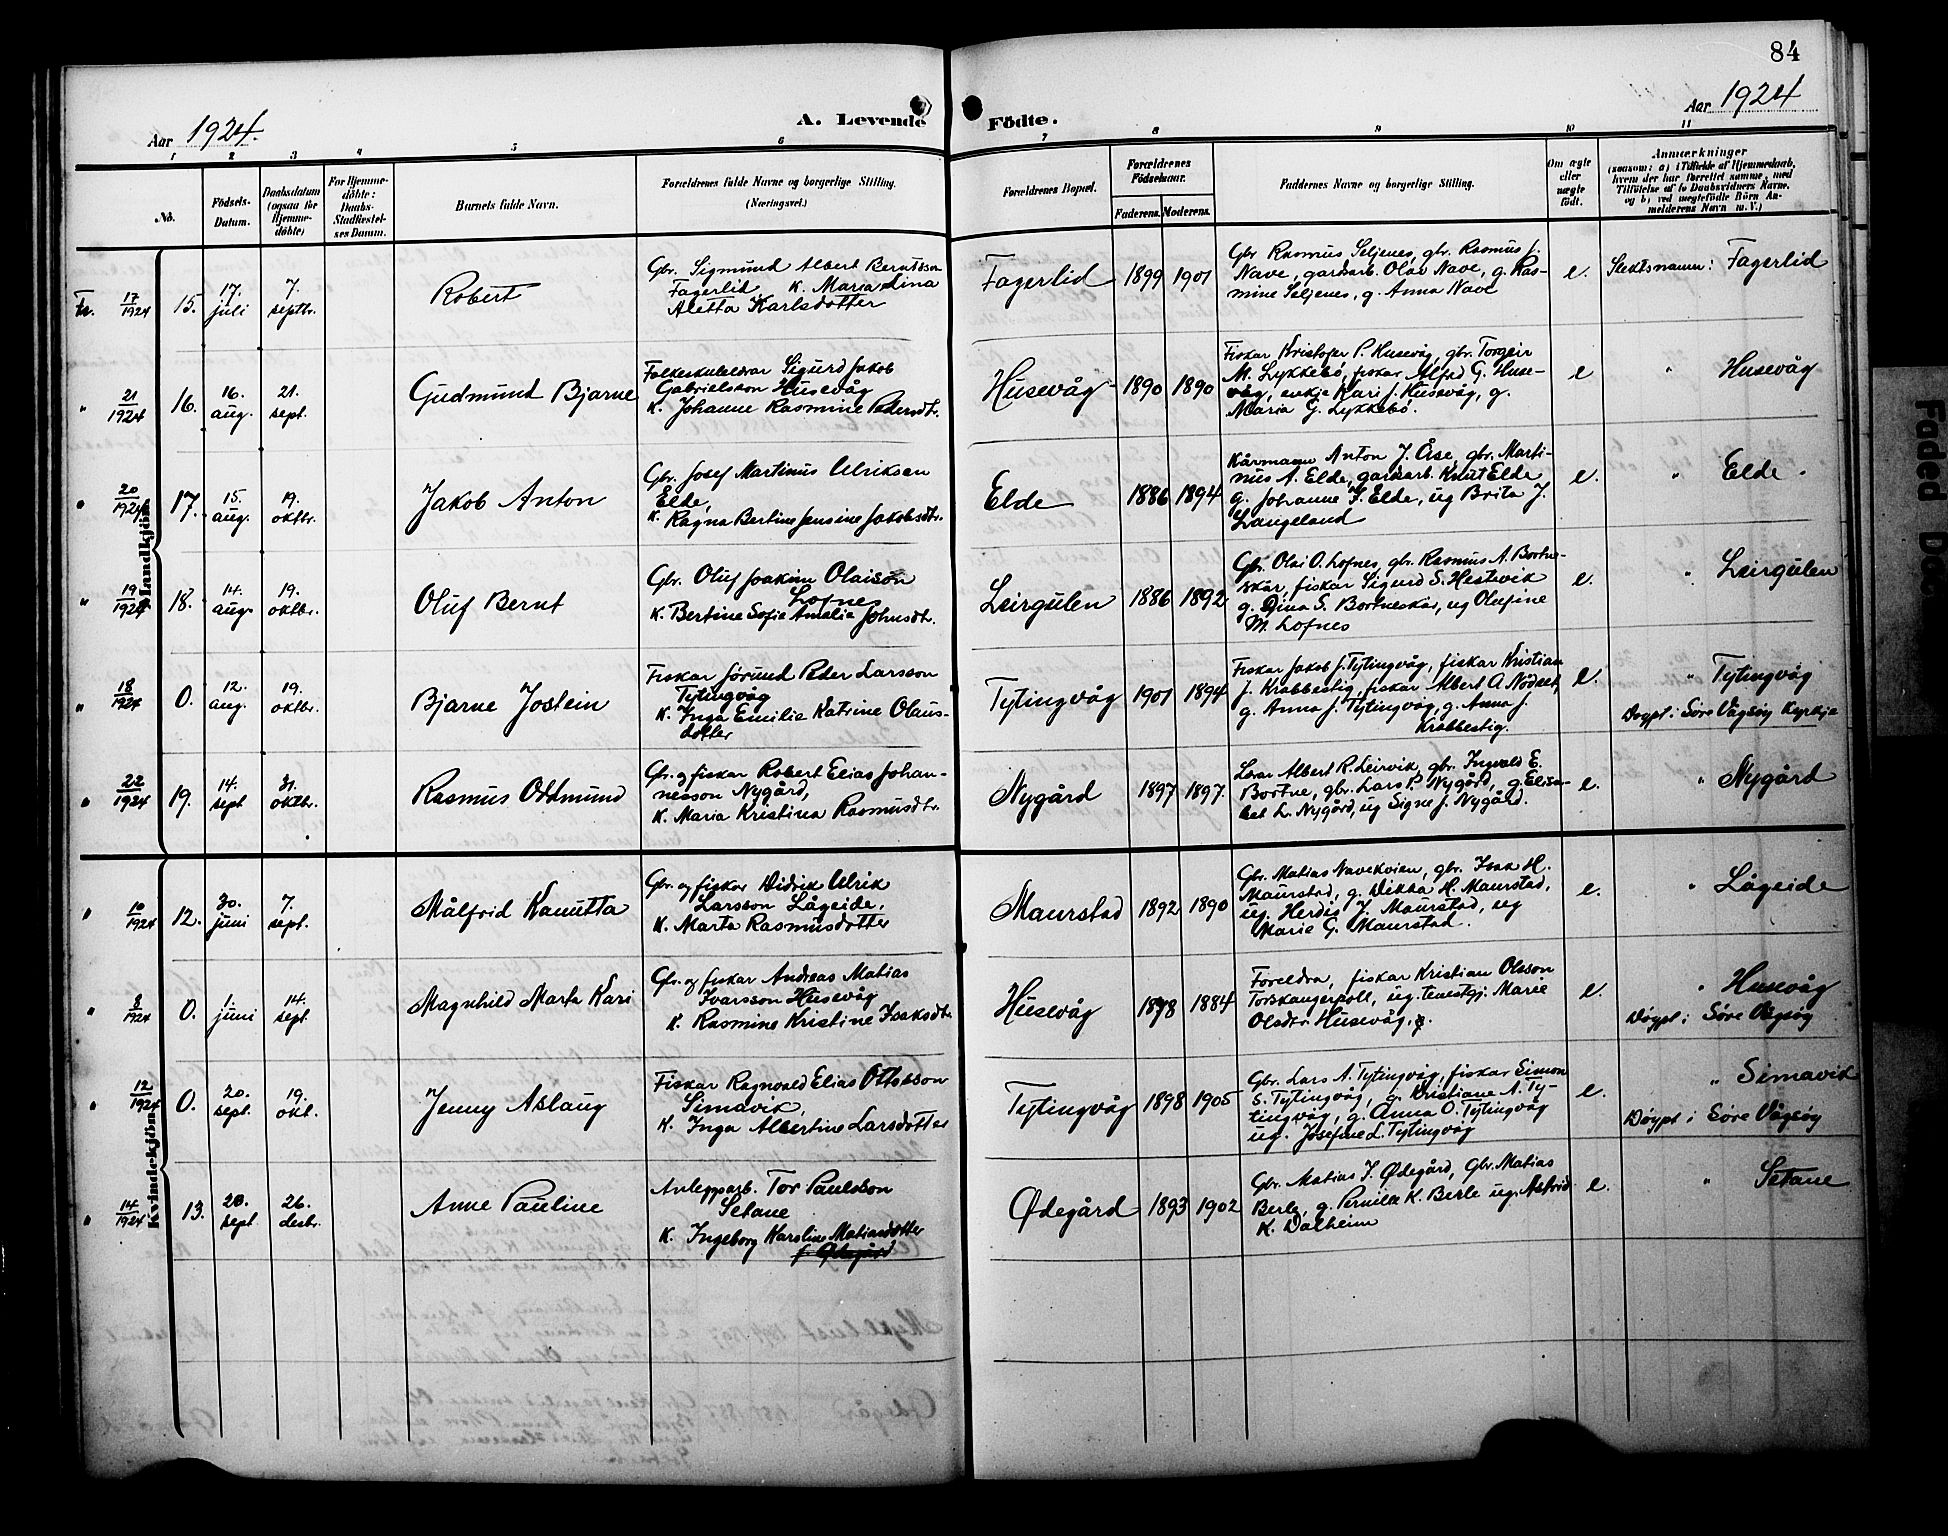 84
Aar 1924.
A. Levende
Födte.
Aar 1924
1 2 3 4 5 6 7 8 9 10 11
No.
Födsels-
Datum.
Daabsdatum
(ogsaa for
Hjemme-
döbte)
For Hjemme-
döbte:
Daabs-
Stadfæstel-
ses Datum.
Barnets fulde Navn.
Forældrenes fulde Navne og borgerlige Stilling.
(Næringsvei.)
Forældrenes Bopæl.
Forældrenes
Födselsaar.
Faderens. Moderens.
Faddernes Navne og borgerlige Stilling.
Om ægte
eller
uægte
født.
Anmærkninger
(saasom: a) i Tilfælde af Hjemmedaab,
hvem der har forrettet samme, med
Tilföielse af to Daabsvidners Navne,
og b) ved uægtefödte Börn An-
melderens Navn m. V.)
Mandkjön.
Fr. 17/1924
15.
17.
juli
7.
septbr.
Robert
Gbr. Sigmund Albert Berntsson
Fagerlid K. Maria Lina
Aletta Karlsdotter
Fagerlid
1899
1901
Gbr Rasmus Seljenes, gbr. Rasmus J.
Nave, gardarb. Olav Nave, g. Ras-
mine Seljenes, g. Anna Nave
e.
Slektsnamn: Fagerlid
" 21/1924
16.
16.
aug.
21.
sept.
Gudmund Bjarne
Folkeskulelærar Sigurd Jakob
Gabrielsson Husevåg
K. Johanne Rasmine Pedersdt.
Husevåg
1890
1890
Fiskar Kristofer P. Husevåg, gbr. Torgeir
M. Lykkebö, fiskar Alfred G. Huse-
våg, enkje Kari J. Husevåg, g.
Maria G. Lykkebö.
e
" Husevåg
" 20/1924
17.
15.
aug.
19.
oktbr.
Jakob Anton
Gbr. Josef Martinus Ulriksen
Elde,
K. Ragna Bertine Jensine Jakobsdtr.
Elde
1886
1894
Kårmann Anton J. Åse, gbr. Marti-
nus A. Elde, gardarb. Knut Elde
g. Johanne J. Elde, ug Brita J.
Langeland
e.
" Elde.
" 19/1924
18.
14.
aug.
19.
oktbr.
Oluf Bernt
Gbr. Oluf Joakim Olaison
Lofnes
K. Bertine Sofie Amalia Johnsdtr.
Leirgulen
1886
1892
Gbr. Olai O. Lofnes, gbr. Rasmus A. Bortne-
skår, fiskar Sigurd S. Hestevik
g. Dina S. Bortneskår, ug Olufine
M. Lofnes
e.
" Leirgulen
" 18/1924
0.
12.
aug.
19.
oktbr.
Bjarne Jostein
Fiskar Jörund Peder Larsson
Tytingvåg
K. Inga Emilie Katrine Olaus-
dotter
Tytingvåg
1901
1894
Fiskar Jakob J. Tytingvåg, fiskar Kristian
J. Krabbestig, fiskar Albert A Nödset,
g. Anna J. Tytingvåg, g. Anna J.
Krabbestig.
e.
" Tytingvåg
Döypt i Söre Vågsöy Kyrkje
" 22/1924
19.
14.
sept
31.
oktbr.
Rasmus Oddmund
Gbr. og fiskar Robert Elias Johan-
nesson Nygård,
K. Maria Kristina Rasmusdtr.
Nygård
1897
1897.
Lærar Albert R. Leirvik, gbr. Ingvald E.
Bortne, gbr. Lars P. Nygård, g. Elisa-
bet L. Nygård, ug Signe J. Nygård.
e.
" Nygård
Kvindekjön.
" 10/1924
12.
30.
juni
7.
sept.
Målfrid Kanutta
Gbr. og fiskar Didrik Ulrik
Larsson Lågeide,
K. Marta Rasmusdotter
Maurstad
1892
1890
Gbr. Matias Navekvien, gbr. Isak H.
Maurstad, g. Dikka H. Maurstad,
ug. Herdis J. Maurstad, ug
Marie G. Maurstad.
e.
" Lågeide
0.
1.
juni
14.
sept.
Magnhild Marta Kari
Gbr. og fiskar Andreas Matias
Ivarsson Husevåg
K. Rasmine Kristine Isaksdtr.
Husevåg
1878
1884
Foreldra, fiskar Kristian Olsson
Torskangerpoll, ug. tenestgj. Marie
Olsdtr Husevåg.
e.
" Husevåg
Döypt i Söre Vågsöy
" 12/1924
0.
20.
sept.
19.
okt.
Jenny Aslaug
Fiskar Ragnvald Elias Ottesson
Simavik,
K. Inga Albertine Larsdotter
Tytingvåg
1898
1905
Gbr. Lars A. Tytingvåg, fiskar Simon
S. Tytingvåg, g. Kristiane A. Ty-
tingvåg, g. Anna O. Tytingvåg
ug. Josefine L. Tytingvåg
e.
" Simavik
Döypt i Söre Vågsöy
" 14/1924
13.
20.
sept
26.
desbr.
Anne Pauline
Anleggsarb. Tor Paulsson
Setane
K. Ingeborg Karoline Matiasdotter
f. Ødegård
Ødegård
1893
1902
Gbr. Matias J. Ødegård, Gbr. Matias
Berle, g. Pernilla K. Berle ug. Astrid
K. Dalheim
e.
" Setane